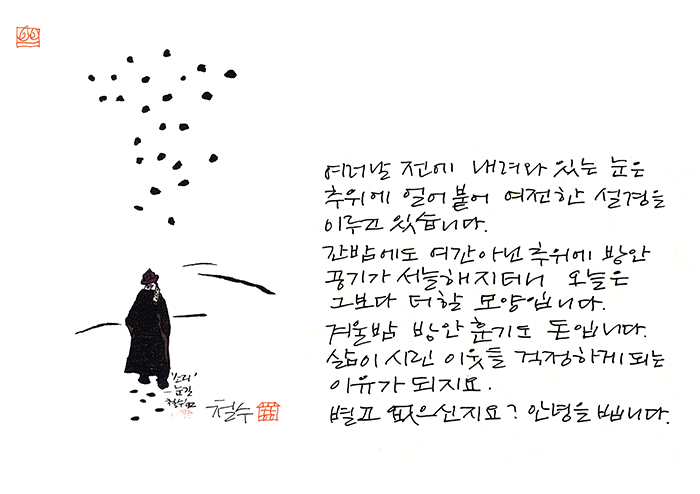 여러날 전에 내려와 있는 눈은
추위에 얼어붙어 여전한 설경을
이루고 있습니다.
간밤에도 여간 아닌 추위에 방안
공기가 서늘해지더니 오늘은
그보다 더할 모양입니다.
겨울밤 방안 훈기도 돈입니다.
삶이 시린 이웃들 걱정하게 되는
이유가 되지요.
별고 없으신지요? 안녕을 빕니다.
'소리'
눈길
철수